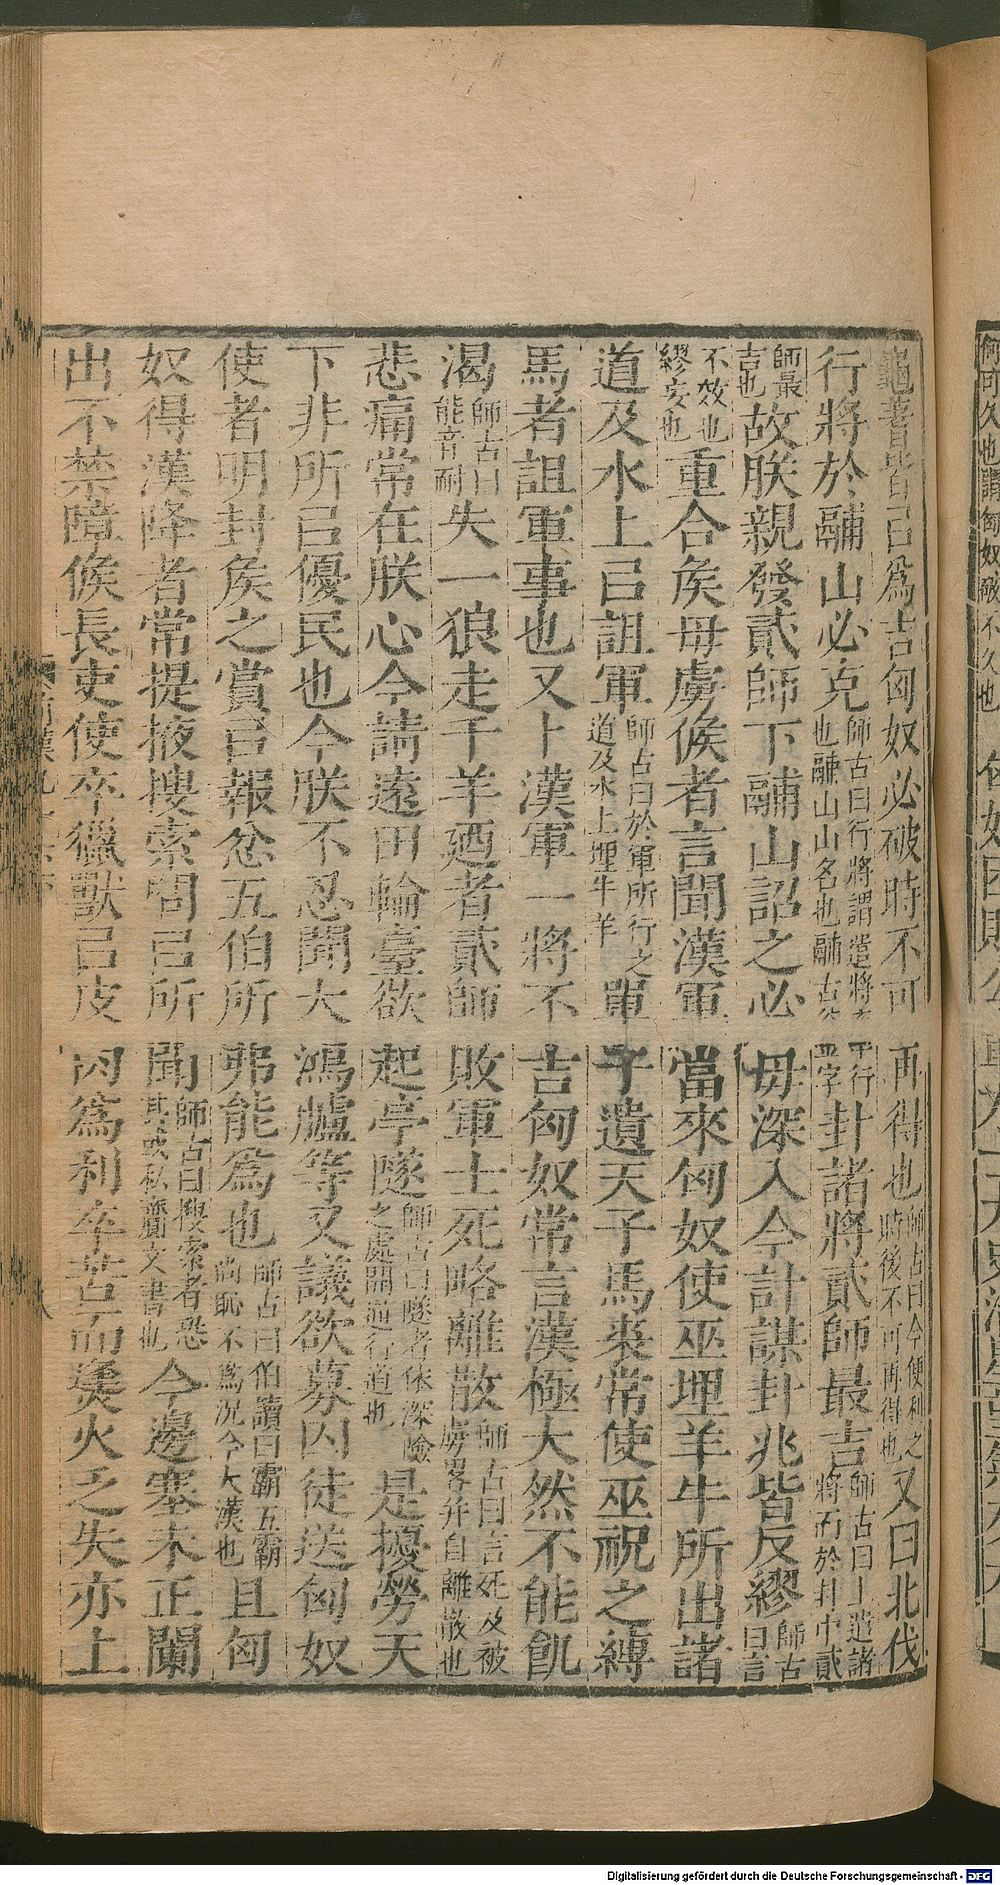 龜蓍皆㠯爲吉匈奴必破時不可再得也師古曰今便利之時後不可再得也又曰北伐
行將於鬴山必克師古曰行將謂遣將率行也鬴山山名也鬴古釜字卦諸將貳師最吉師古曰上遣諸將而於卦中貳
師最吉也故朕親發貳師下鬴山詔之必毋深入今計謀卦兆皆反繆師古曰言
不效也繆妄也重合侯毋虜候者言聞漢軍當來匈奴使巫埋羊牛所出諸
道及水上㠯詛軍師古曰於軍所行之道及水上埋牛羊單于遺天子馬裘常使巫祝之縛
馬者詛軍事也又卜漢軍一將不吉匈奴常言漢極大然不能飢
渴師古曰能音耐失一狼走千羊廼者貳師敗軍士死略離散師古曰言死及被虜畧并自離散也
悲痛常在朕心今請遠田輪臺欲起亭隧師古曰隧者依深險之處開通行道也是擾勞天
下非所㠯優民也今朕不忍聞大鴻臚等又議欲募囚徒送匈奴
使者明封侯之賞㠯報忿五伯所弗能爲也師古曰伯讀曰霸五霸尚恥不爲況今大漢也且匈
奴得漢降者常提掖搜索問㠯所聞師古曰搜索者恐其或私齎文書也今邊塞未正闌
出不禁障候長吏使卒獵獸㠯皮肉爲利卒苦而烽火乏失亦上
何可久也謂匈奴破不久也 匈奴困敗公
Digitalisierung gefördert durch die Deutsche Forschungsgemeinschaft - DFG